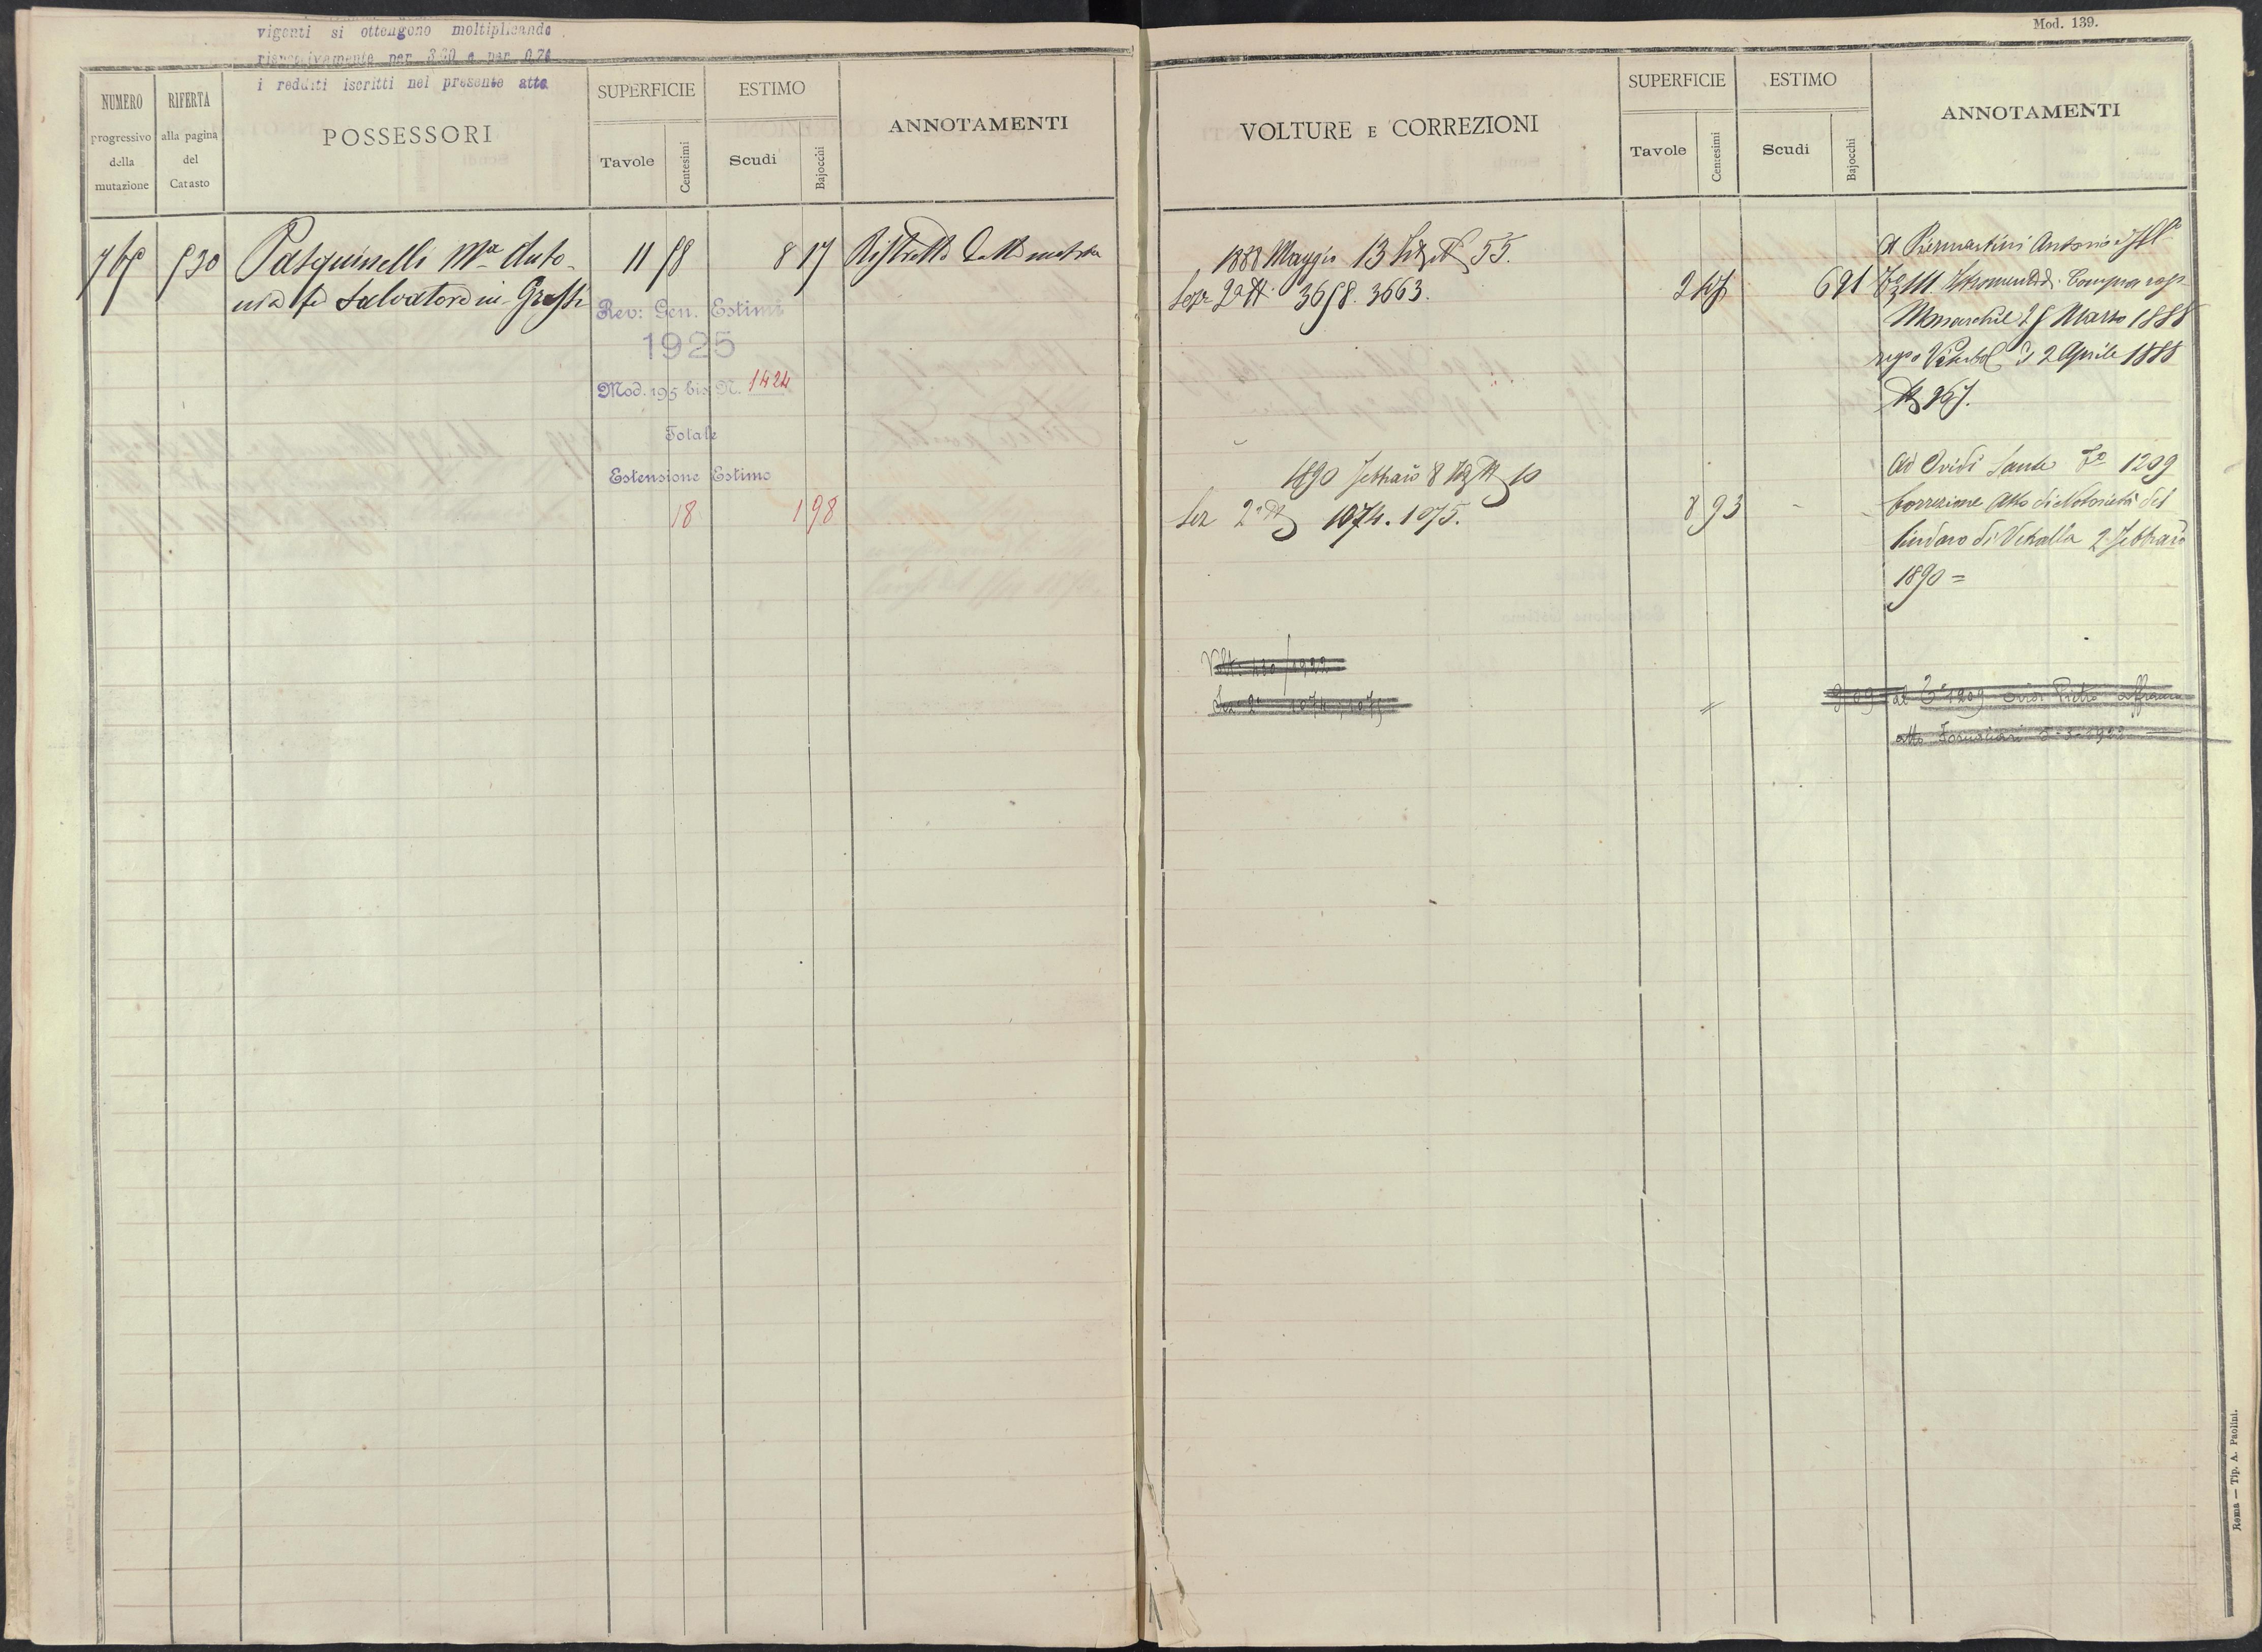 vigenti si ottengono moltiplicando
rispettivamente per 3.20 e per 0.70
i redditi iscritti nel presente atto
NUMERO
progressivo
della
mutazione
RIFERTA
alla pagina
del
Catasto
POSSESSORI
SUPERFICIE
Tavole
Centesimi
ESTIMO
Scudi
Bajocchi
ANNOTAMENTI
530
Pasquinelli Mª Anto-
nia fu Salvatore in Grassi
11 58
8 17
Ristretto della matrice
Rev: Gen. Estimi
1925
Mod. 195 bis N. 1424
Totale
Estensione Estimo
18
1 98
Mod. 139.
VOLTURE E CORREZIONI
SUPERFICIE
Tavole
Centesimi
ESTIMO
Scudi
Bajocchi
ANNOTAMENTI
1888 Maggio 13 55.
Sez 2ª 3658. 3663.
2
6 91
A Piermartini Antonio
Compra rog.
25 Marzo 1888
2 Aprile 1888
1890 Febbraio 8 10
Sez 2ª 1074. 1075.
8 93
Ad Ovidi Sante 1209
Correzione Atto di Notorietà del
Sindaco di Vetralla 2 Febbraio
1890 =
Sez 2ª 1074, 1075
al 1209 Ovidi Pietro
atto
Roma — Tip. A. Paolini.